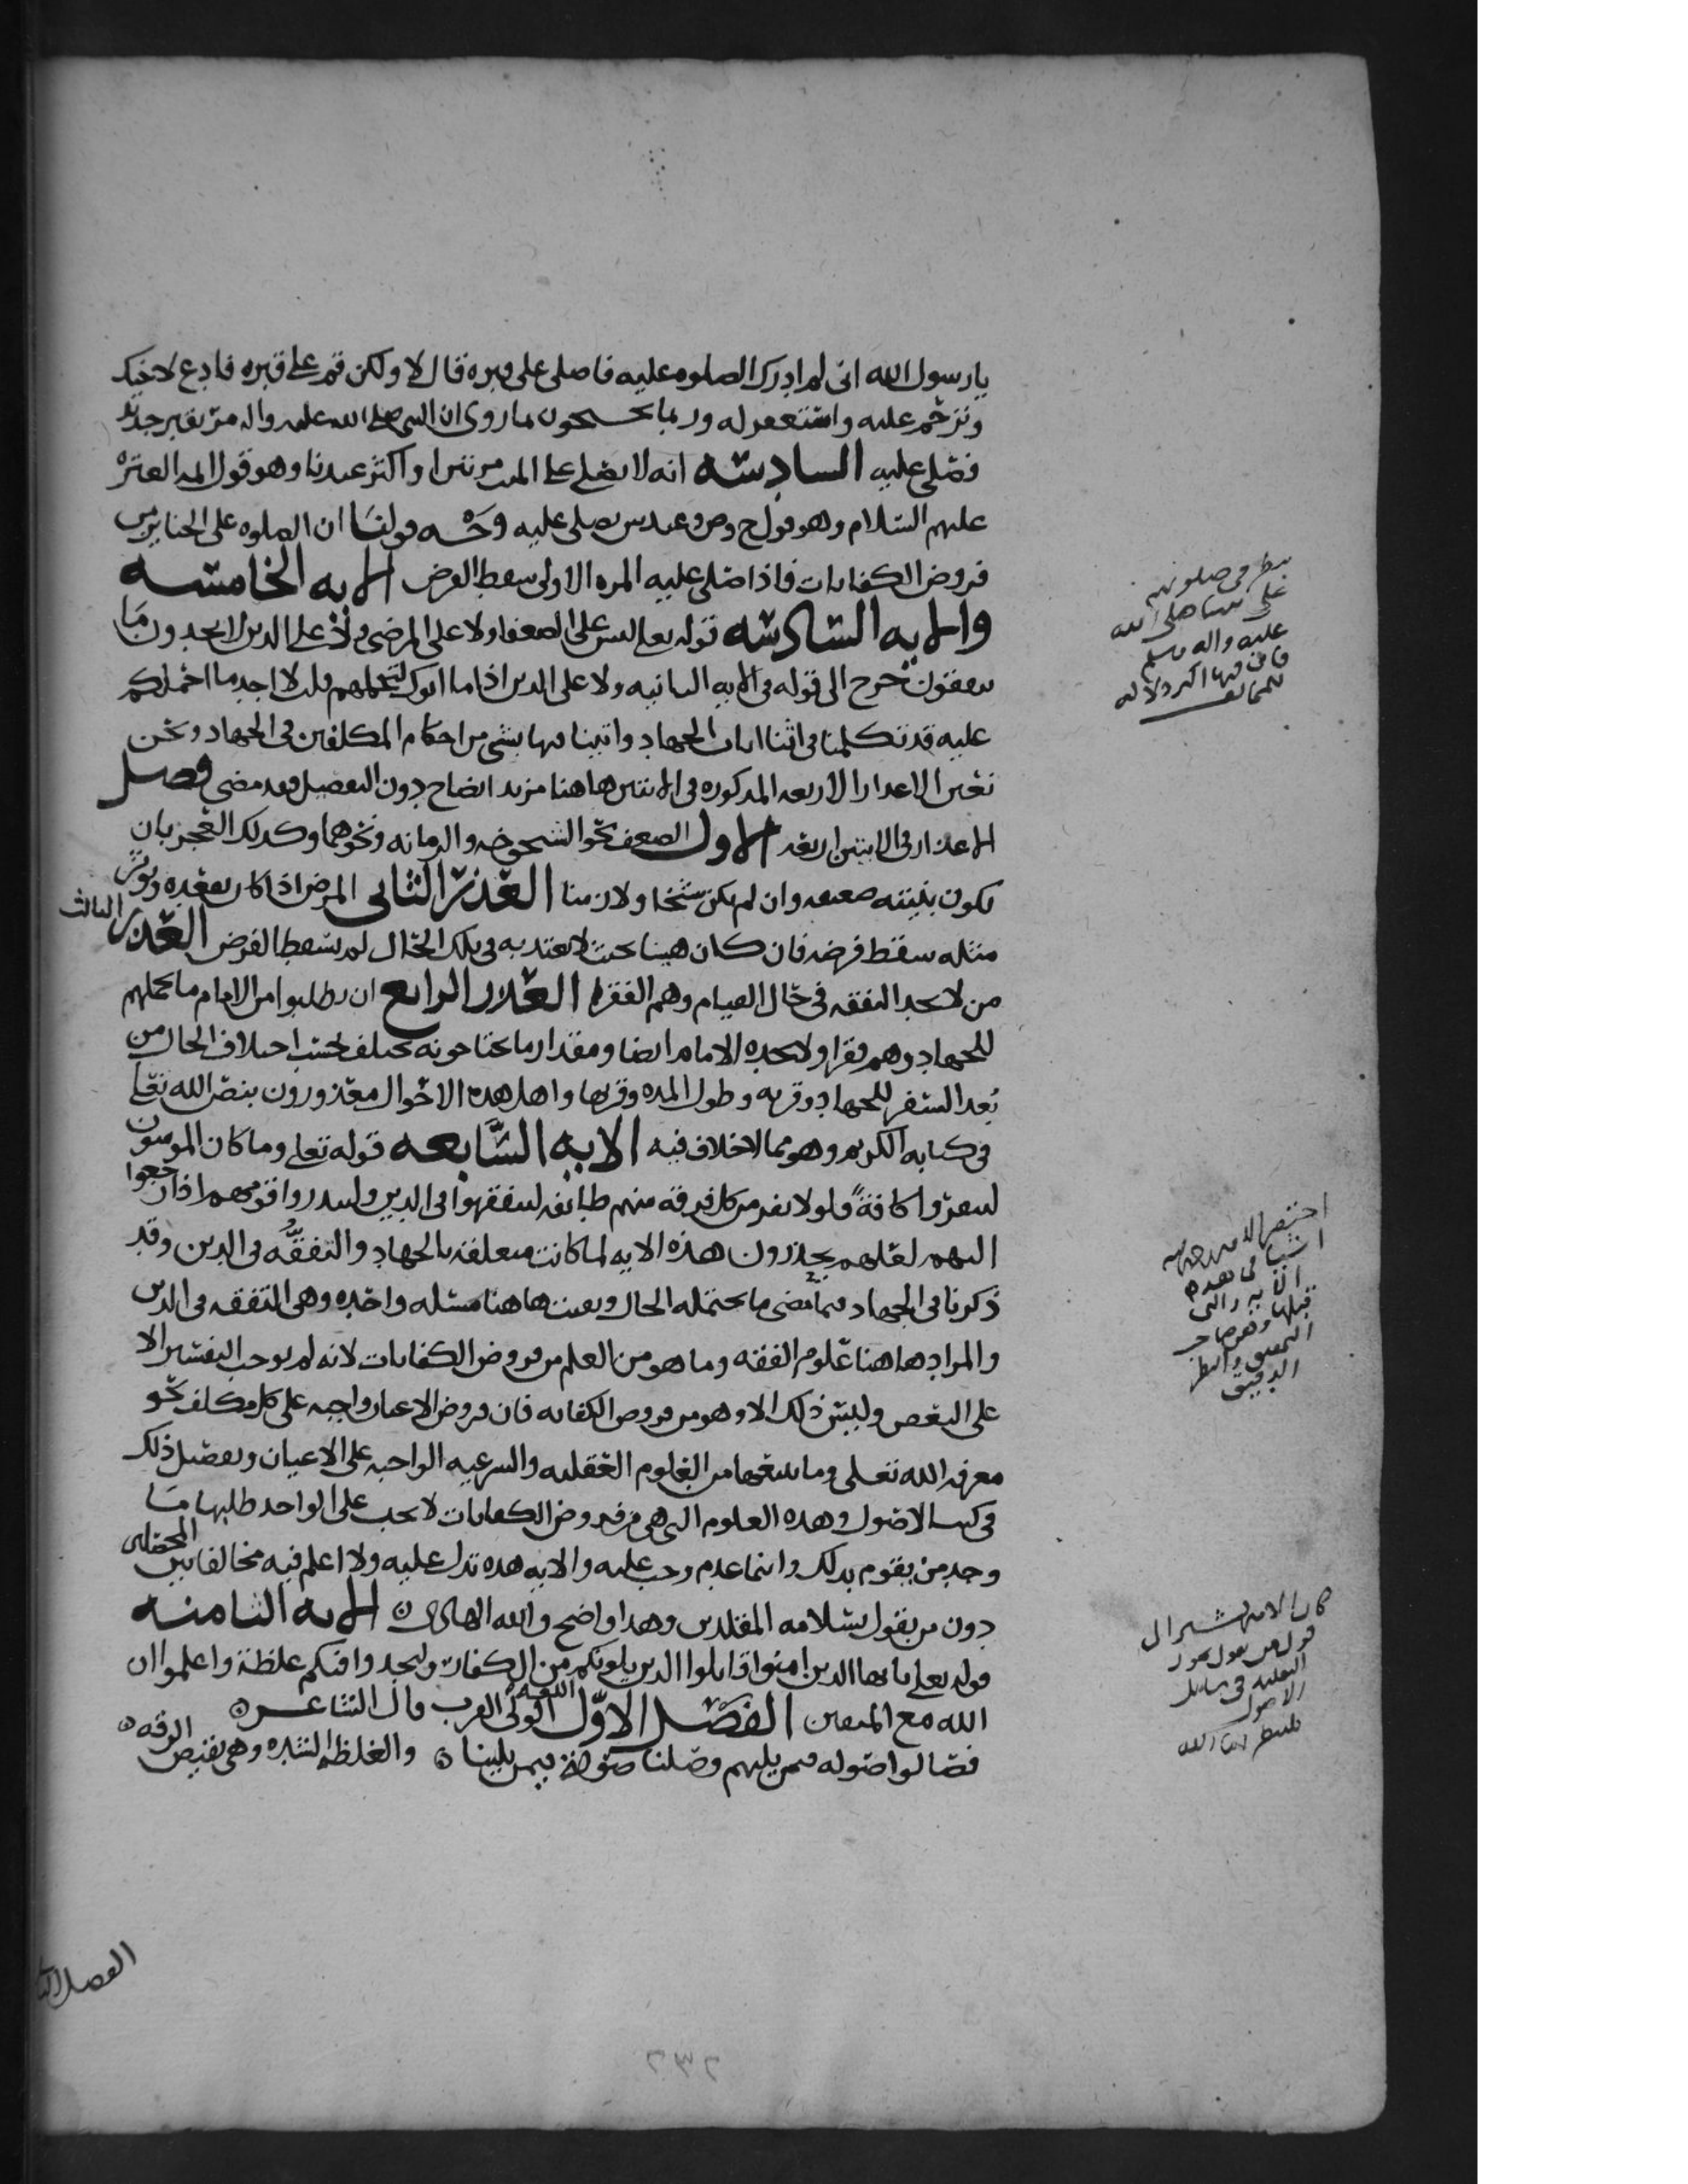 يا رسول الله اني لم ادرك الصلوه عليه فاصلي على قبره قال لا ولكن قم على قبره فادع لاخيك
وترحم عليه واستغفر له وربما يحتجون بما روي ان النبي صلى الله عليه واله مر بقبر جديد
فصلى عليه السادسه انه لا يصلى على الميت مرتين او اكثر عندنا وهو قول ايمه العتره
عليهم السلام وهو قول ح وص وعند س يصلى عليه وجه قولنا ان الصلوه على الجنايز من
فروض الكفايات فاذا صلى عليه المره الاولى سقط الفرض الايه الخامسه
والايه السادسه قوله تعلى ليس على الضعفا ولا على المرضى ولا على الذين لا يجدون ما
ينفقون حرج الى قوله في الايه الثانيه ولا على الذين اذا ما اتوك لتحملهم قلت لا اجد ما احملكم
عليه قد تكلمنا في اثنا ايات الجهاد واتينا فيها بشي من احكام المكلفين في الجهاد ونحن
نعين الاعذار الاربعه المذكوره في الايتين هاهنا مزيد ايضاح دون التفصيل فقد مضى فصل
الاعذار في الايتين اربعه الاول الضعف نحو الشيخوخه والزمانه ونحوهما وكذلك العجز بان
تكون بنيته ضعيفه وان لم يكن شيخا ولا زمنا العذر الثاني المرض اذا كان يقعده ويوثر
مثله سقط فرضه فان كان هينا بحيث لا يعتد به في تلك الحال لم يسقط الفرض العذر الثالث
من لا يجد النفقه في حال القيام وهم الفقرا العذر الرابع ان يطلبوا من الامام ما يحملهم
للجهاد وهم فقرا ولا يجده الامام ايضا ومقدار ما يحتاجونه يختلف بحسب اختلاف الحال من
بعد السفر للجهاد وقربه وطول المده وقربها واهل هذه الاحوال معذورون بنص الله تعلى
في كتابه الكريم وهو مما لا خلاف فيه الايه السابعه قوله تعلى وما كان المومنون
لينفروا كافة فلولا نفر من كل فرقه منهم طايفه ليتفقهوا في الدين ولينذروا قومهم اذا رجعوا
اليهم لعلهم يحذرون هذه الايه لما كانت متعلقه بالجهاد والتفقه في الدين وقد
ذكرنا في الجهاد فيما مضى ما يحتمله الحال وبقيت هاهنا مسئله واحده وهي التفقه في الدين
والمراد هاهنا علوم الفقه وما هو من العلم من فروض الكفايات لانه لم يوجب التفسير الا
على البعض وليس ذلك الا وهو من فروض الكفايه فان فروض الاعيان واجبه على كل مكلف نحو
معرفه الله تعلى وما يتبعها من العلوم العقليه والشرعيه الواجبه على الاعيان وتفصيل ذلك
في كتب الاصول وهذه العلوم التي هي من فروض الكفايات لا يجب على الواحد طلبها ما
وجد من يقوم بذلك وانما عدم وجب عليه والايه هذه تدل عليه ولا اعلم فيه مخالفا بين المحصلين
دون من يقول بسلامه المقلدين وهذا واضح والله الهادي الايه الثامنه
قوله تعلى يا ايها الذين امنوا قاتلوا الذين يلونكم من الكفار وليجدوا فيكم غلظة واعلموا ان
الله مع المتقين الفصل الاول اللغه الولي القرب قال الشاعر
فصالوا صوله فيمن يليهم وصلنا صولة فيمن يلينا والغلظه الشده وهي نقيض الرقه
ينظر في صلوتهم
على نبينا صلى الله
عليه واله وسلم
فان فيها اكبر دلاله
للمخالف
الايه والتي
قبلها وهو صاحب
التحقيق والنظر
الدقيق
كان الامير يشير الى
قول من يقول بجواز
التقليد في مسايل
الاصول
الفصل الثا
٢٣٢